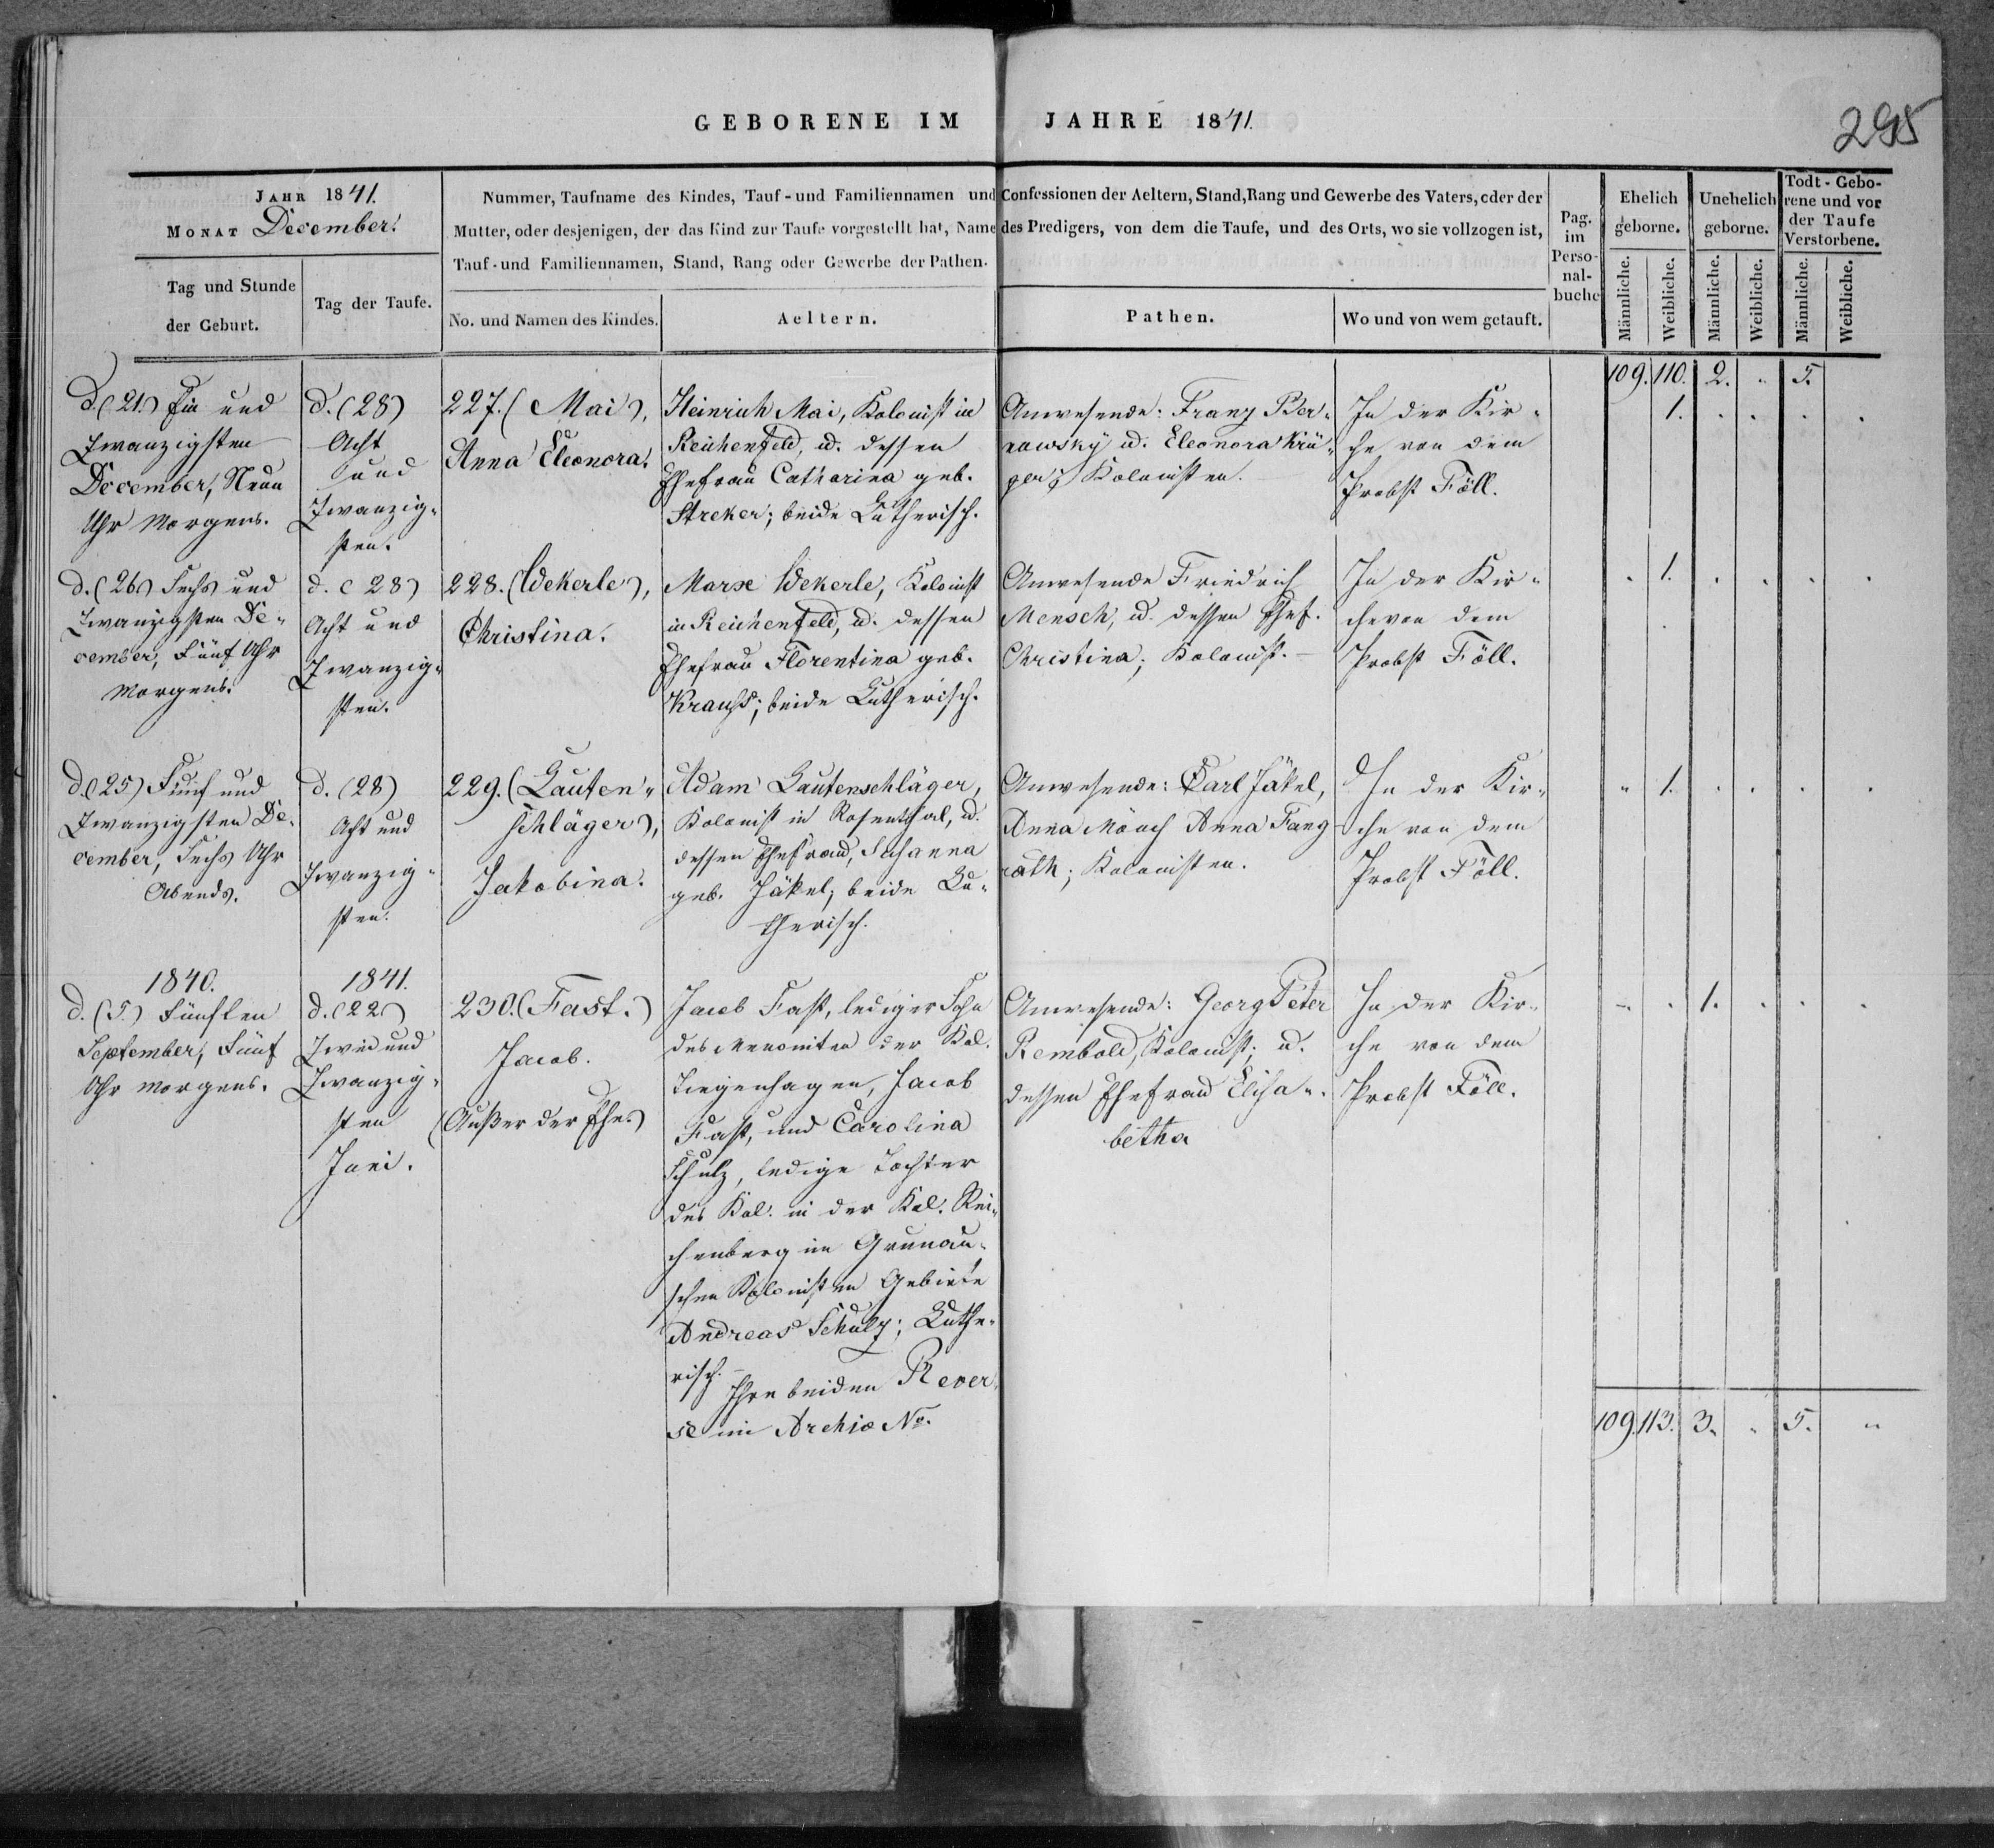 GEBORENE IM JAHRE 1841.
295
JAHR 1841.
MONAT December.
Tag und Stunde
der Geburt.
Tag der Taufe.
Nummer, Taufname des Kindes, Tauf- und Familiennamen und Confessionen der Aeltern, Stand, Rang und Gewerbe des Vaters, oder der
Mutter, oder desjenigen, der das Kind zur Taufe vorgestellt hat, Name des Predigers, von dem die Taufe, und des Orts, wo sie vollzogen ist,
Tauf- und Familiennamen, Stand, Rang oder Gewerbe der Pathen.
No. und Namen des Kindes.
Aeltern.
Pathen.
Wo und von wem getauft.
Pag.
im
Perso-
nal-
buche
Ehelich
geborne.
Unehelich
geborne.
Todt-Gebo-
rene und vor
der Taufe
Verstorbene.
Männliche.
Weibliche.
Männliche.
Weibliche.
Männliche.
Weibliche.
109. 110. 2. " 5.
d. (21.) Ein und
Zwanzigsten
December, Neun
Uhr Morgens.
d. (28)
Acht
und
Zwanzig-
sten.
227. (Mai),
Anna Eleonora.
Heinrich Mai, Kolonist in
Reichenfeld, u. dessen
Ehefrau Catharina geb.
Streker; beide Lutherisch.
Anwesende: Franz Ber-
nawsky u. Eleonora Krü-
ger; Kolonisten.
In der Kir-
che von dem
Probst Föll.
1. . . . .
d. (26) Sechs und
Zwanzigsten De-
cember, Fünf Uhr
Morgens.
d. (28)
Acht und
Zwanzig-
sten.
228. (Wekerle),
Christina.
Marx Wekerle, Kolonist
in Reichenfeld, u. dessen
Ehefrau Florentina geb.
Krauß; beide Lutherisch.
Anwesende Friedrich
Mensch, u. dessen Ehef.
Christina; Kolonist. –
In der Kir-
che von dem
Probst Föll.
. 1. . . . .
d. (25) Fünf und
Zwanzigsten De-
cember, Sechs Uhr
Abends.
d. (28)
Acht und
Zwanzig-
sten.
229. (Lauten-
schläger),
Jakobina.
Adam Lautenschläger,
Kolonist in Rosenthal, u.
dessen Ehefrau, Susanna
geb. Jäkel; beide Lu-
therisch.
Anwesende: Carl Jäkel,
Anna Mönch Anna Fang
rath; Kolonisten.
In der Kir-
che von dem
Probst Föll.
" 1. . . . .
1840.
d. (5.) Fünften
September, Fünf
Uhr morgens.
1841.
d. (22)
Zwei und
Zwanzig-
sten
Juni.
230. (Fast.)
Jacob.
(Außer der Ehe.)
Jacob Fast, lediger Sohn
des Menoniten der Kol.
Tiegenhagen, Jacob
Fast, und Carolina
Schulz, ledige Tochter
des Kol. in der Kol. Rei-
chenberg im Grunau-
schen Kolonisten Gebiete
Andreas Schulz; Luthe-
risch. –
Ihre beiden Rever
se im Archiv No.
Anwesende: Georg Peter
Rembold, Kolonist; u.
dessen Ehefrau Elisa-
betha
In der Kir-
che von dem
Probst Föll.
- . 1. . . .
109. 113. 3. " 5. "